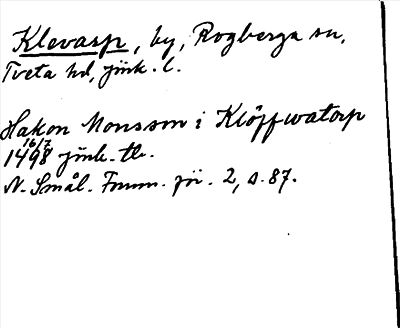 Klevarp, by, Rogberga sn,
Tveta hd, jönk. l.
Hakon Monsson i Klöffwatorp
16/7
1498 jönk. tb.
N. Smål. Fornm. för. 2, s. 87.